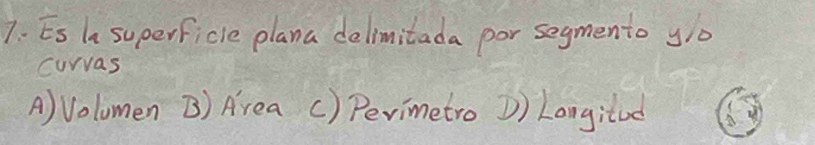 7.- Es la superficie plana delimitada por segmento y/o
curvas
A) Volumen B) Área C) Perímetro D) Longitud